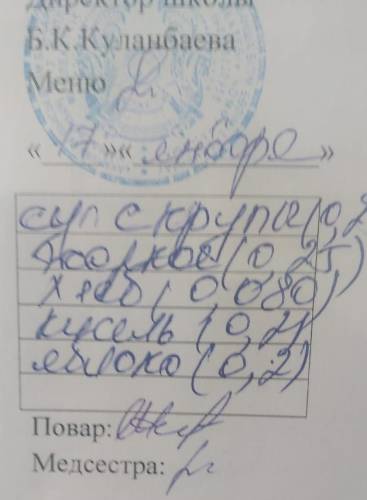 Директор школы
Б.К.Куланбаева
Меню
« 17 »« января »
суп с крупы (0,2
Жаркое (0,25)
Хлеб (0,080)
кисель (0,2)
яблоко (0,2)
Повар:
Медсестра: